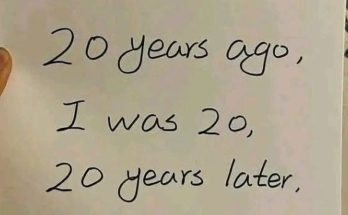 20 years ago,
I was 20,
20 years later.